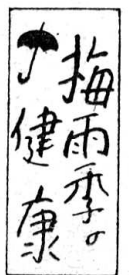 梅雨季の
☂健康